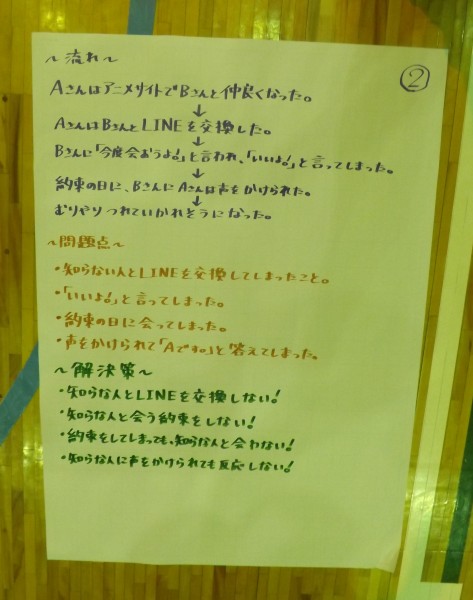 ②
～流れ～
AさんはアニメサイトでBさんと仲良くなった。
↓
AさんはBさんとLINEを交換した。
↓
Bさんに「今度会おうよ!」と言われ、「いいよ!」と言ってしまった。
↓
約束の日に、BさんにAさんは声をかけられた。
↓
むりやりつれていかれそうになった。
～問題点～
・知らない人とLINEを交換してしまったこと。
・「いいよ!」と言ってしまった。
・約束の日に会ってしまった。
・声をかけられて「Aです。」と答えてしまった。
～解決策～
・知らな人とLINEを交換しない!
・知らなんと会う約束をしない!
・約束をしてしまっても、知らなんと会わない!
・知らな人に声をかけられても反応しない!